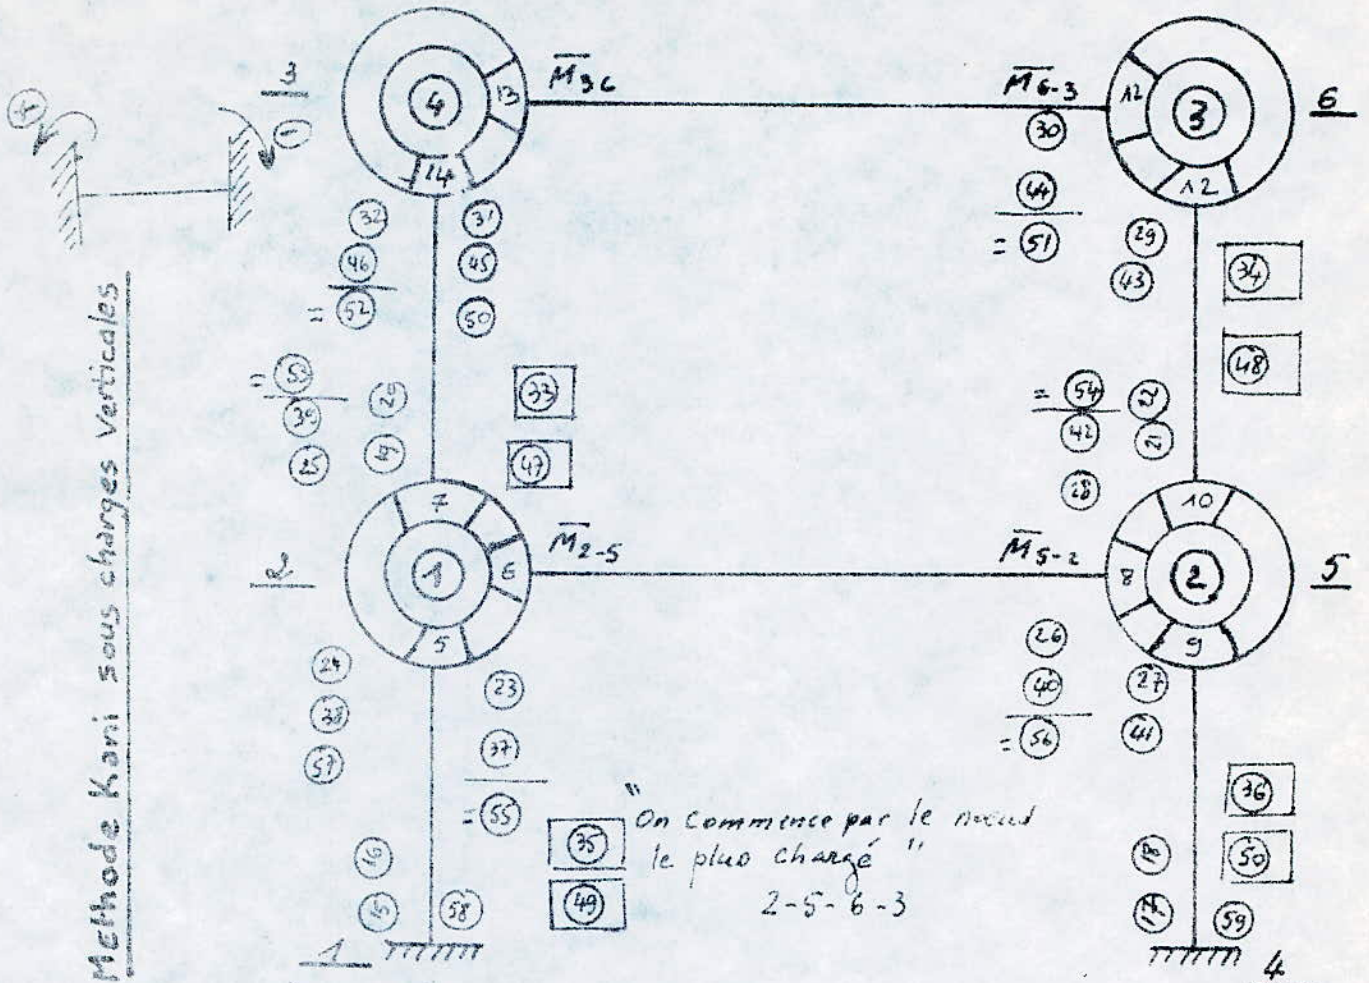 Methode Kani sous charges verticales
3
4
13
14
M̅36
M̅6-3
12
3
12
6
30
44
= 51
32
46
= 52
31
45
50
29
43
34
48
= 53
39
25
33
47
= 54
42
28
21
7
1
6
5
2
M̅2-5
M̅5-2
10
8
2
9
5
24
38
57
23
37
= 55
26
40
= 56
27
41
36
50
35
49
"On commence par le nœud
le plus chargé"
2-5-6-3
16
15
58
59
1
4